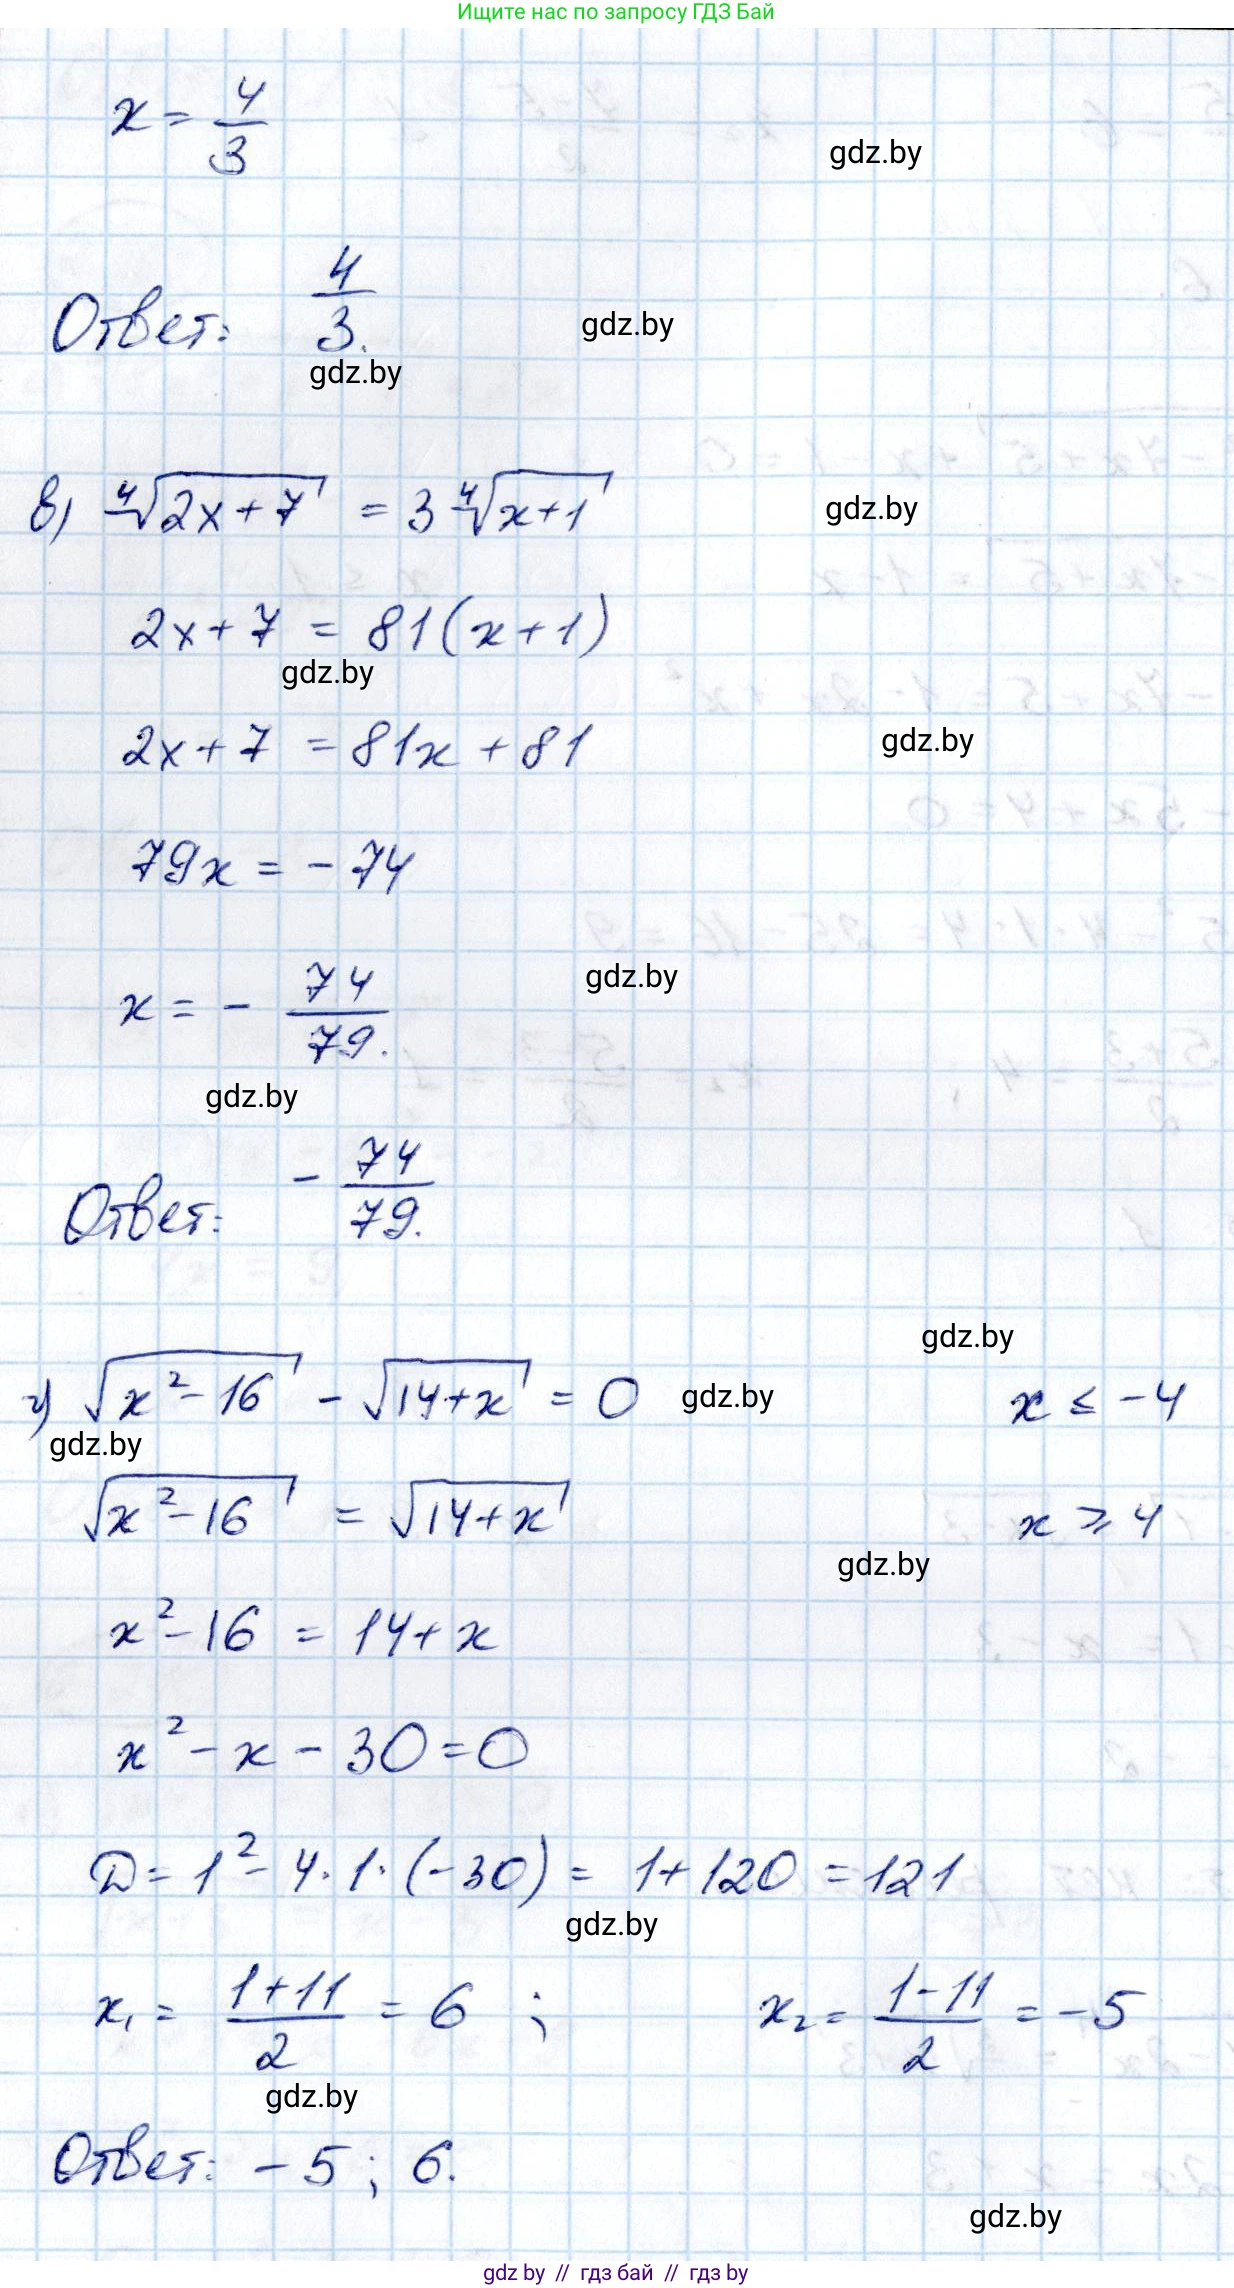 Ищите нас по запросу ГДЗ Бай
x = 4/3
gdz.by
Ответ: 4/3.
gdz.by
gdz.by
в) ⁴√(2x+7) = 3 ⁴√(x+1)
gdz.by
2x+7 = 81(x+1)
gdz.by
2x+7 = 81x+81
gdz.by
79x = -74
x = - 74/79.
gdz.by
gdz.by
Ответ: - 74/79.
gdz.by
г) √(x²-16) - √(14+x) = 0
gdz.by
x ≤ -4
gdz.by
√(x²-16) = √(14+x)
x ≥ 4
gdz.by
x²-16 = 14+x
x²-x-30=0
D = 1²-4·1·(-30) = 1+120 = 121
gdz.by
x₁ = (1+11)/2 = 6 ; x₂ = (1-11)/2 = -5
gdz.by
Ответ: -5; 6.
gdz.by
gdz.by // гдз бай // гдз by